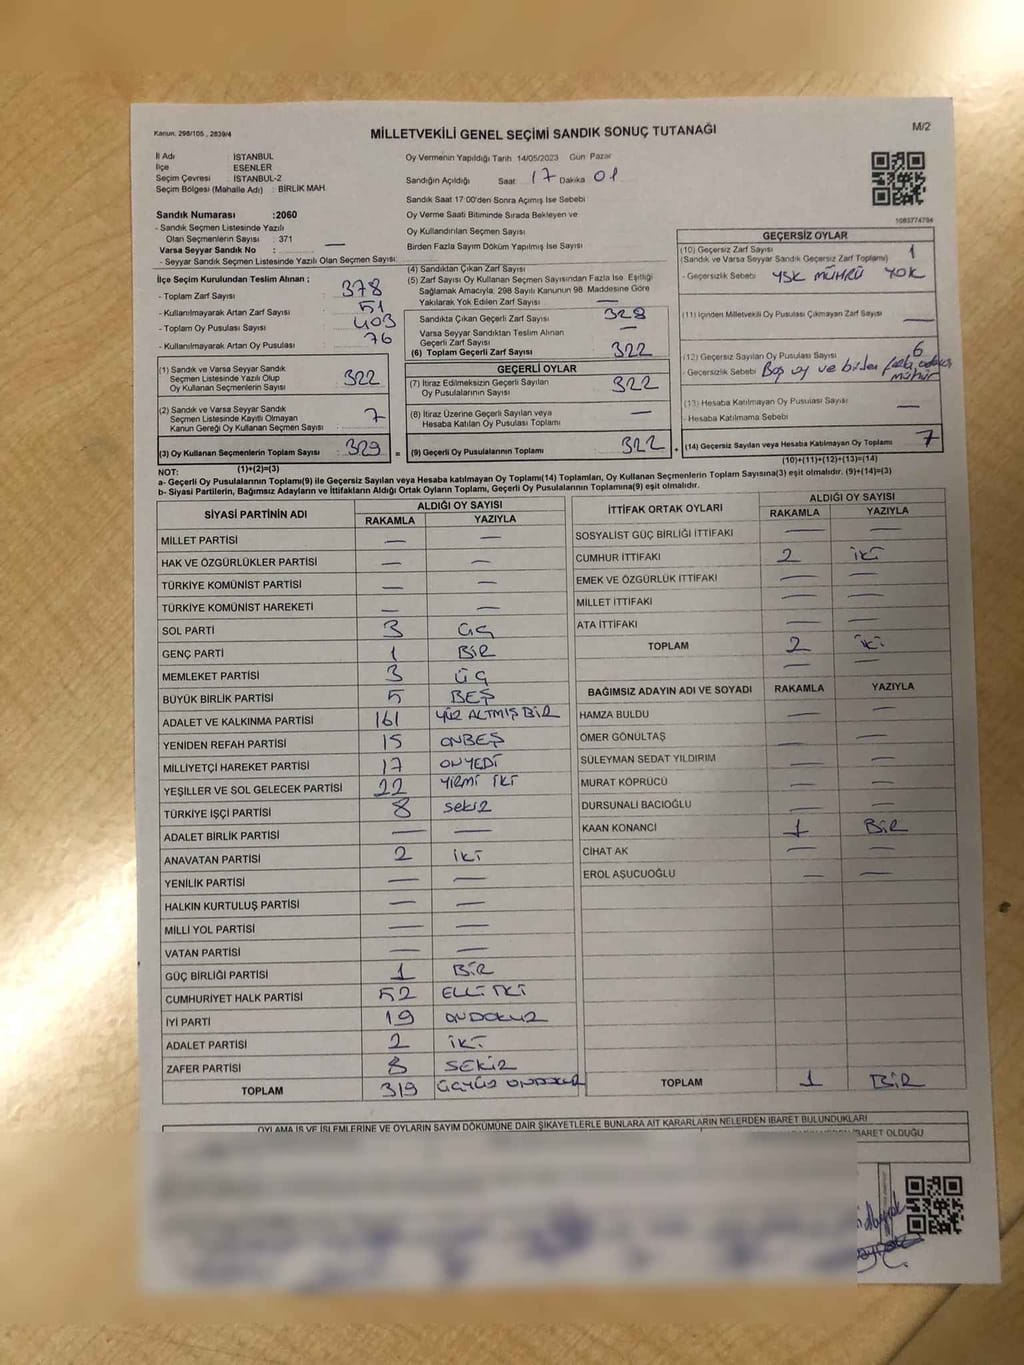 Kanun, 298/105 , 2839/4
MİLLETVEKİLİ GENEL SEÇİMİ SANDIK SONUÇ TUTANAĞI
M/2
İl Adı : İSTANBUL
İlçe : ESENLER
Seçim Çevresi : İSTANBUL-2
Seçim Bölgesi (Mahalle Adı) : BİRLİK MAH.
Oy Vermenin Yapıldığı Tarih 14/05/2023 Gün Pazar
Sandığın Açıldığı Saat 17 Dakika 01
Sandık Saat 17:00'den Sonra Açımış İse Sebebi
Oy Verme Saati Bitiminde Sırada Bekleyen ve
Oy Kullandırılan Seçmen Sayısı
Birden Fazla Sayım Döküm Yapılmış İse Sayısı
1083774794
Sandık Numarası :2060
- Sandık Seçmen Listesinde Yazılı
Olan Seçmenlerin Sayısı : 371
Varsa Seyyar Sandık No : —
- Seyyar Sandık Seçmen Listesinde Yazılı Olan Seçmen Sayısı:
İlçe Seçim Kurulundan Teslim Alınan ;
- Toplam Zarf Sayısı : 378
- Kullanılmayarak Artan Zarf Sayısı : 51
- Toplam Oy Pusulası Sayısı : 403
- Kullanılmayarak Artan Oy Pusulası : 76
(1) Sandık ve Varsa Seyyar Sandık
Seçmen Listesinde Yazılı Olup
Oy Kullanan Seçmenlerin Sayısı : 322
(2) Sandık ve Varsa Seyyar Sandık
Seçmen Listesinde Kayıtlı Olmayan
Kanun Gereği Oy Kullanan Seçmen Sayısı : 7
(3) Oy Kullanan Seçmenlerin Toplam Sayısı : 329
(1)+(2)=(3)
(4) Sandıktan Çıkan Zarf Sayısı
(5) Zarf Sayısı Oy Kullanan Seçmen Sayısından Fazla İse, Eşitliği
Sağlamak Amacıyla, 298 Sayılı Kanunun 98. Maddesine Göre
Yakılarak Yok Edilen Zarf Sayısı —
Sandıkta Çıkan Geçerli Zarf Sayısı : 328
Varsa Seyyar Sandıktan Teslim Alınan
Geçerli Zarf Sayısı : —
(6) Toplam Geçerli Zarf Sayısı : 322
GEÇERLİ OYLAR
(7) İtiraz Edilmeksizin Geçerli Sayılan
Oy Pusulalarının Sayısı : 322
(8) İtiraz Üzerine Geçerli Sayılan veya
Hesaba Katılan Oy Pusulası Toplamı : —
= (9) Geçerli Oy Pusulalarının Toplamı : 322
GEÇERSİZ OYLAR
(10) Geçersiz Zarf Sayısı 1
(Sandık ve Varsa Seyyar Sandık Geçersiz Zarf Toplamı)
- Geçersizlik Sebebi YSK MÜHRÜ YOK
(11) İçinden Milletvekili Oy Pusulası Çıkmayan Zarf Sayısı —
(12) Geçersiz Sayılan Oy Pusulası Sayısı 6
- Geçersizlik Sebebi Boş oy ve birden fazla
mühür
(13) Hesaba Katılmayan Oy Pusulası Sayısı —
- Hesaba Katılmama Sebebi
+ (14) Geçersiz Sayılan veya Hesaba Katılmayan Oy Toplamı 7
(10)+(11)+(12)+(13)=(14)
NOT:
a- Geçerli Oy Pusulalarının Toplamı(9) ile Geçersiz Sayılan veya Hesaba katılmayan Oy Toplamı(14) Toplamları, Oy Kullanan Seçmenlerin Toplam Sayısına(3) eşit olmalıdır. (9)+(14)=(3)
b- Siyasi Partilerin, Bağımsız Adayların ve İttifakların Aldığı Ortak Oyların Toplamı, Geçerli Oy Pusulalarının Toplamına(9) eşit olmalıdır.
SİYASİ PARTİNİN ADI ALDIĞI OY SAYISI
RAKAMLA YAZIYLA
MİLLET PARTİSİ — —
HAK VE ÖZGÜRLÜKLER PARTİSİ — —
TÜRKİYE KOMÜNİST PARTİSİ — —
TÜRKİYE KOMÜNİST HAREKETİ — —
SOL PARTİ 3 ÜÇ
GENÇ PARTİ 1 BİR
MEMLEKET PARTİSİ 3 ÜÇ
BÜYÜK BİRLİK PARTİSİ 5 BEŞ
ADALET VE KALKINMA PARTİSİ 161 YÜZ ALTMIŞ BİR
YENİDEN REFAH PARTİSİ 15 ONBEŞ
MİLLİYETÇİ HAREKET PARTİSİ 17 ONYEDİ
YEŞİLLER VE SOL GELECEK PARTİSİ 22 YİRMİ İKİ
TÜRKİYE İŞÇİ PARTİSİ 8 sekiz
ADALET BİRLİK PARTİSİ — —
ANAVATAN PARTİSİ 2 İKİ
YENİLİK PARTİSİ — —
HALKIN KURTULUŞ PARTİSİ — —
MİLLİ YOL PARTİSİ — —
VATAN PARTİSİ — —
GÜÇ BİRLİĞİ PARTİSİ 1 BİR
CUMHURİYET HALK PARTİSİ 52 ELLİ İKİ
İYİ PARTİ 19 ONDOKUZ
ADALET PARTİSİ 2 İKİ
ZAFER PARTİSİ 8 SEKİZ
TOPLAM 319 ÜÇYÜZ ONDOKUZ
İTTİFAK ORTAK OYLARI ALDIĞI OY SAYISI
RAKAMLA YAZIYLA
SOSYALİST GÜÇ BİRLİĞİ İTTİFAKI — —
CUMHUR İTTİFAKI 2 İKİ
EMEK VE ÖZGÜRLÜK İTTİFAKI — —
MİLLET İTTİFAKI — —
ATA İTTİFAKI — —
TOPLAM 2 İKİ
— —
BAĞIMSIZ ADAYIN ADI VE SOYADI RAKAMLA YAZIYLA
HAMZA BULDU — —
ÖMER GÖNÜLTAŞ — —
SÜLEYMAN SEDAT YILDIRIM — —
MURAT KÖPRÜCÜ — —
DURSUNALİ BACIOĞLU — —
KAAN KONANCI 1 BİR
CİHAT AK — —
EROL AŞUCUOĞLU — —
TOPLAM 1 BİR
OYLAMA İŞ VE İŞLEMLERİNE VE OYLARIN SAYIM DÖKÜMÜNE DAİR ŞİKAYETLERLE BUNLARA AİT KARARLARIN NELERDEN İBARET BULUNDUKLARI
İBARET OLDUĞU